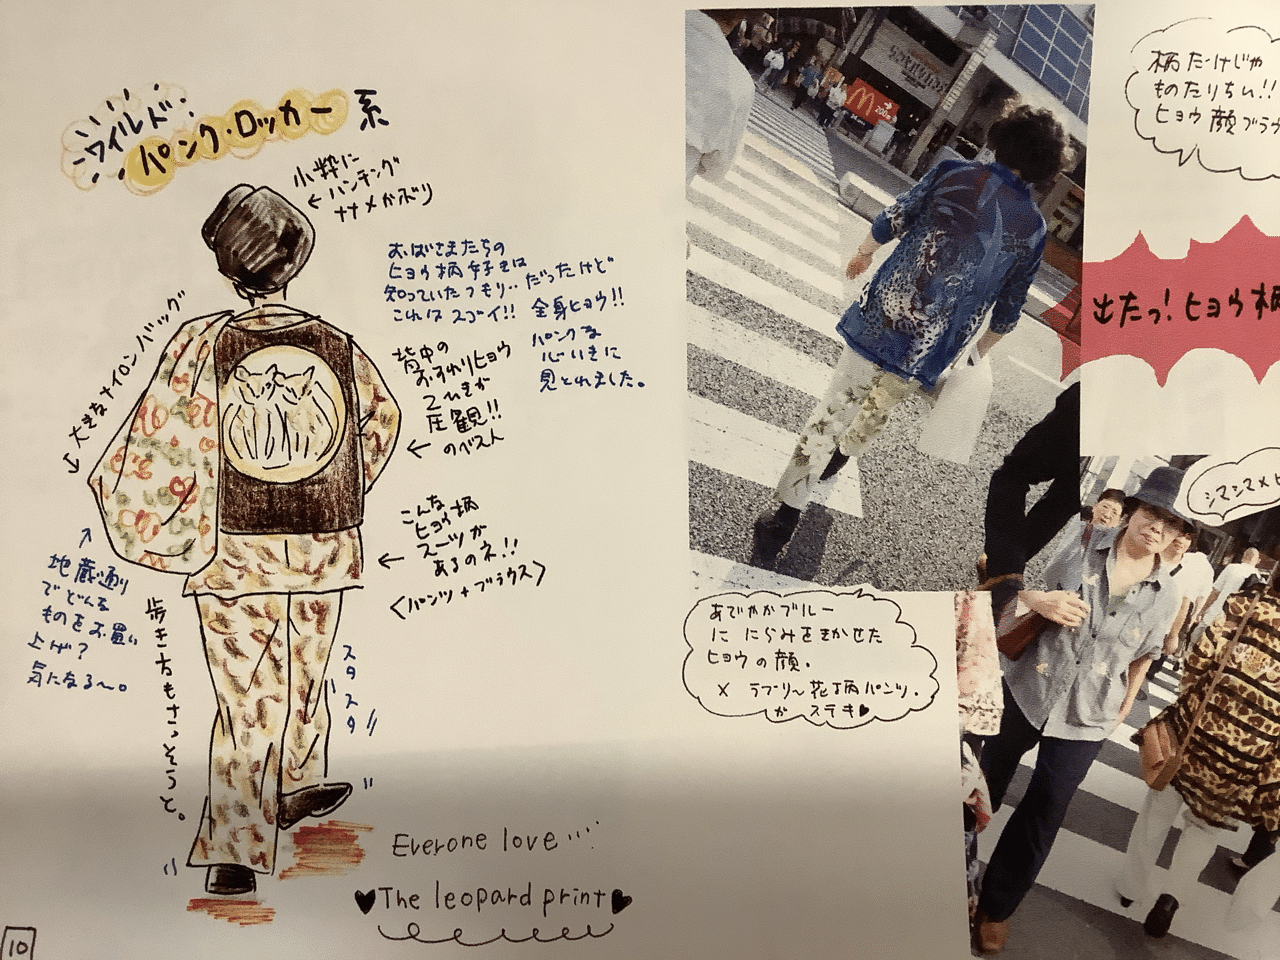 ワイルド
パンク・ロッカー系
小粋に
ハンチング
ナナメかぶり
おばさまたちの
ヒョウ柄好きは
知っていたつもり‥だったけど
これはスゴイ!! 全身ヒョウ!!
パンクな
心いきに
見とれました。
大きなナイロンバッグ
背中の
おすわりヒョウ
2ひきが
圧観!!
のベスト
こんな
ヒョウ柄
スーツが
あるのネ!!
<パンツ+ブラウス>
地蔵通り
でどんな
ものをお買い
上げ?
気になる〜。
歩き方もさっそうと。
スタスタ
Everone love
The leopard print
10
柄だけじゃ
ものたりない!!
ヒョウ顔ブラウ
M
200
出たっ!ヒョウ柄
あでやかブルー
に にらみをきかせた
ヒョウの顔.
× ラブリ〜花柄パンツ.
が ステキ
シマシマ×ヒ